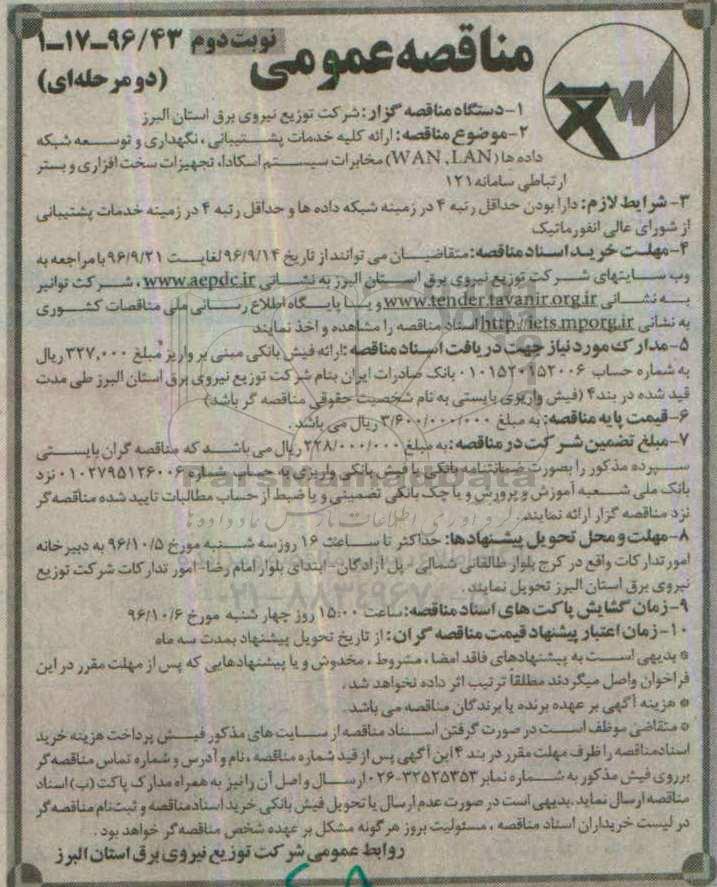 مناقصه عمومی
نوبت دوم
۱-۱۷-۹۶/۴۳
(دو مرحله‌ای)
۱- دستگاه مناقصه گزار: شرکت توزیع نیروی برق استان البرز
۲- موضوع مناقصه: ارائه کلیه خدمات پشتیبانی، نگهداری و توسعه شبکه
داده ها (WAN , LAN) مخابرات سیستم اسکادا، تجهیزات سخت افزاری و بستر
ارتباطی سامانه ۱۲۱
۳- شرایط لازم: دارا بودن حداقل رتبه ۴ در زمینه شبکه داده ها و حداقل رتبه ۴ در زمینه خدمات پشتیبانی
از شورای عالی انفورماتیک
۴- مهلت خرید اسناد مناقصه: متقاضیان می توانند از تاریخ ۹۶/۹/۱۴ لغایت ۹۶/۹/۲۱ با مراجعه به
وب سایتهای شرکت توزیع نیروی برق استان البرز به نشانی www.aepdc.ir ، شرکت توانیر
به نشانی www.tender.tavanir.org.ir و یا پایگاه اطلاع رسانی ملی مناقصات کشوری
به نشانی http://iets.mporg.ir اسناد مناقصه را مشاهده و اخذ نمایند
۵- مدارک مورد نیاز جهت دریافت اسناد مناقصه: ارائه فیش بانکی مبنی بر واریز مبلغ ۳۲۷,۰۰۰ ریال
به شماره حساب ۰۱۰۱۵۲۰۱۵۲۰۰۶ بانک صادرات ایران بنام شرکت توزیع نیروی برق استان البرز طی مدت
قید شده در بند ۴ (فیش واریزی بایستی به نام شخصیت حقوقی مناقصه گر باشد)
۶- قیمت پایه مناقصه: به مبلغ ۳/۶۰۰/۰۰۰/۰۰۰ ریال می باشد.
۷- مبلغ تضمین شرکت در مناقصه: به مبلغ ۲۲۸/۰۰۰/۰۰۰ ریال می باشد که مناقصه گران بایستی
سپرده مذکور را بصورت ضمانتنامه بانکی یا فیش بانکی واریزی به حساب شماره ۰۱۰۲۷۹۵۱۲۶۰۰۶ نزد
بانک ملی شعبه آموزش و پرورش و یا چک بانکی تضمینی و یا ضبط از حساب مطالبات تایید شده مناقصه گر
نزد مناقصه گزار ارائه نمایند.
۸- مهلت و محل تحویل پیشنهادها: حداکثر تا ساعت ۱۶ روز سه شنبه مورخ ۹۶/۱۰/۵ به دبیرخانه
امور تدارکات واقع در کرج بلوار طالقانی شمالی - پل آزادگان - ابتدای بلوار امام رضا - امور تدارکات شرکت توزیع
نیروی برق استان البرز تحویل نمایند.
۹- زمان گشایش پاکت های اسناد مناقصه: ساعت ۱۵:۰۰ روز چهار شنبه مورخ ۹۶/۱۰/۶
۱۰- زمان اعتبار پیشنهاد قیمت مناقصه گران: از تاریخ تحویل پیشنهاد بمدت سه ماه
* بدیهی است به پیشنهادهای فاقد امضا، مشروط، مخدوش و یا پیشنهادهایی که پس از مهلت مقرر در این
فراخوان واصل میگردند مطلقا ترتیب اثر داده نخواهد شد.
* هزینه آگهی بر عهده برنده یا برندگان مناقصه می باشد.
* متقاضی موظف است در صورت گرفتن اسناد مناقصه از سایت های مذکور فیش پرداخت هزینه خرید
اسناد مناقصه را ظرف مهلت مقرر در بند ۴ این آگهی پس از قید شماره مناقصه، نام و آدرس و شماره تماس مناقصه گر
بر روی فیش مذکور به شماره نمابر ۳۲۵۲۵۳۵۳-۰۲۶ ارسال و اصل آن را نیز به همراه مدارک پاکت (ب) اسناد
مناقصه ارسال نماید. بدیهی است در صورت عدم ارسال یا تحویل فیش بانکی خرید اسناد مناقصه و ثبت نام مناقصه گر
در لیست خریداران اسناد مناقصه، مسئولیت بروز هر گونه مشکل بر عهده شخص مناقصه گر خواهد بود.
روابط عمومی شرکت توزیع نیروی برق استان البرز